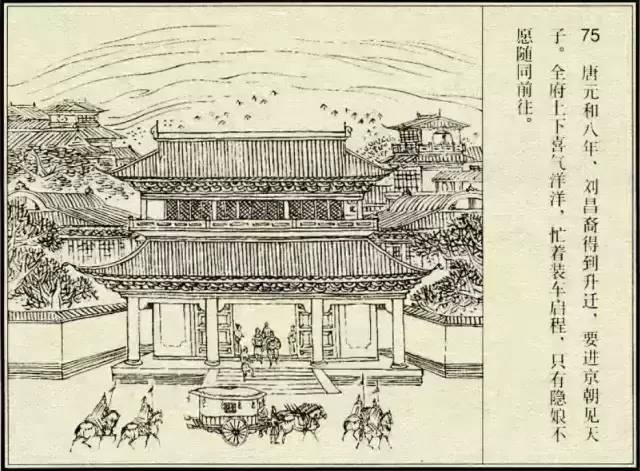 75 唐元和八年，刘昌裔得到升迁，要进京朝见天
子。全府上下喜气洋洋，忙着装车启程，只有隐娘不
愿随同前往。